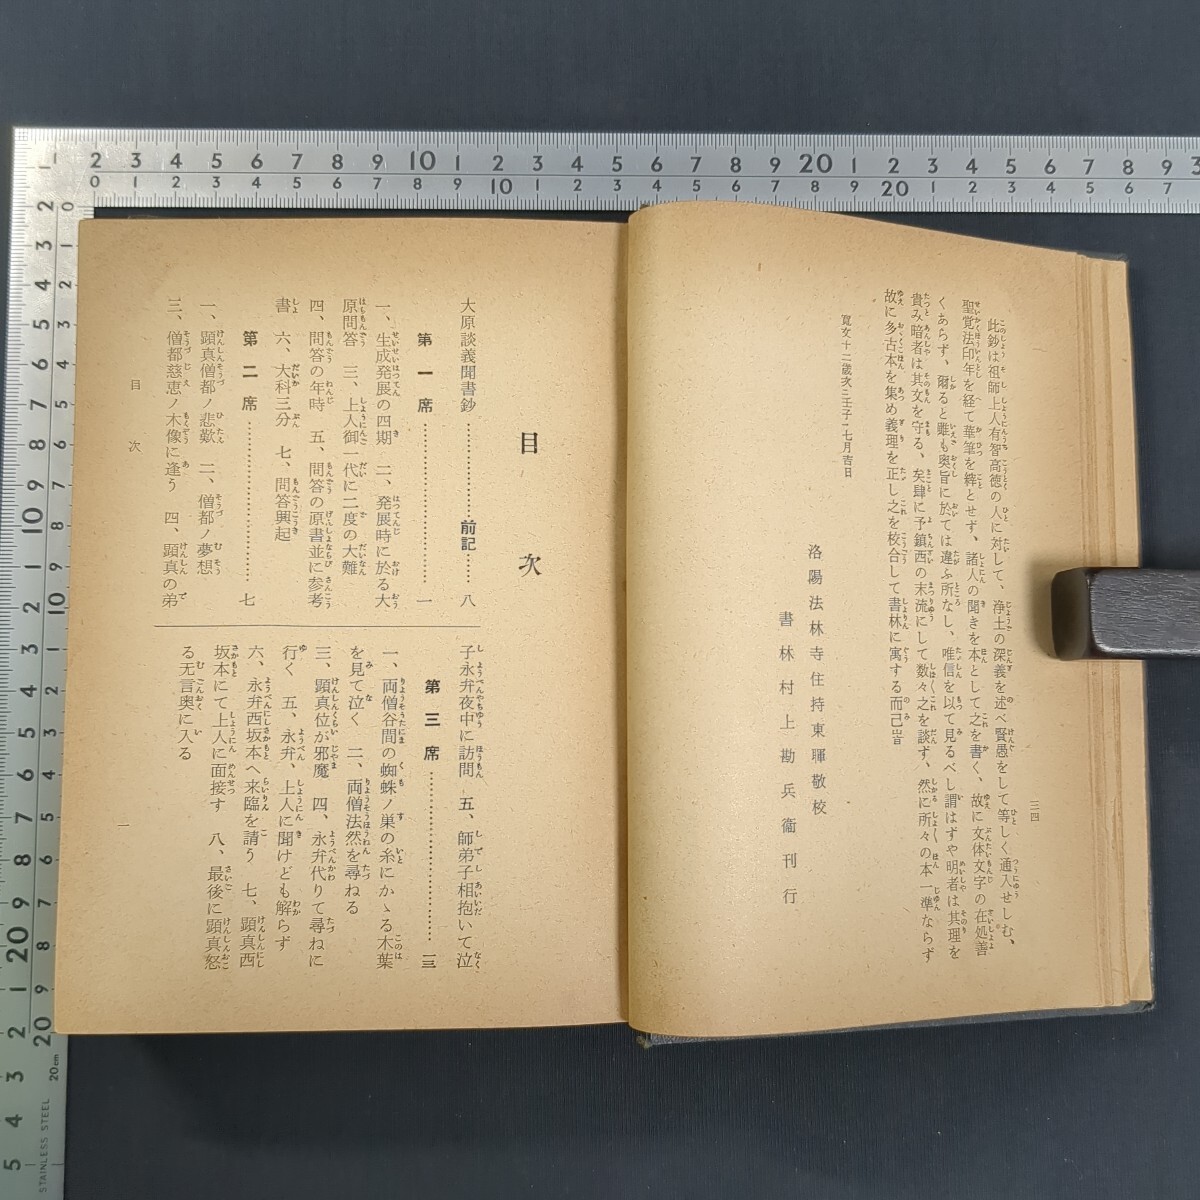 三四
此鈔は祖師上人有智高徳の人に対して、浄土の深義を述べ賢愚をして等しく通入せしむ、
聖覚法印年を経て華筆を絆とせず、諸人の聞きを本として之を書く、故に文体文字の在処善
くあらず、爾ると雖も奥旨に於ては違ふ所なし、唯信を以て見るべし謂はずや明者は其理を
貴み暗者は其文を守る、矣肆に予鎮西の末流にして数々之を談ず、然に所々の本一準ならず
故に多古本を集め義理を正し之を校合して書林に寓する而己
寛文十二歳次壬子七月吉日
洛陽法林寺住持東暉敬校
書林村上勘兵衞刊行
目次
大原談義聞書鈔…………前記……八
第一席……………………一
一、生成発展の四期 二、発展時に於る大
原問答 三、上人御一代に二度の大難
四、問答の年時 五、問答の原書並に参考
書 六、大科三分 七、問答興起
第二席……………………七
一、顕真僧都ノ悲歎 二、僧都ノ夢想
三、僧都慈恵ノ木像に逢う 四、顕真の弟
子永弁夜中に訪問 五、師弟子相抱いて泣
第三席……………………三
一、両僧谷間の蜘蛛ノ巣の糸にかゝる木葉
を見て泣く 二、両僧法然を尋ねる
三、顕真位が邪魔 四、永弁代りて尋ねに
行く 五、永弁、上人に聞けども解らず
六、永弁西坂本へ来臨を請う 七、顕真西
坂本にて上人に面接す 八、最後に顕真怒
る无言奥に入る
目次
一
STAINLESS STEEL
20cm